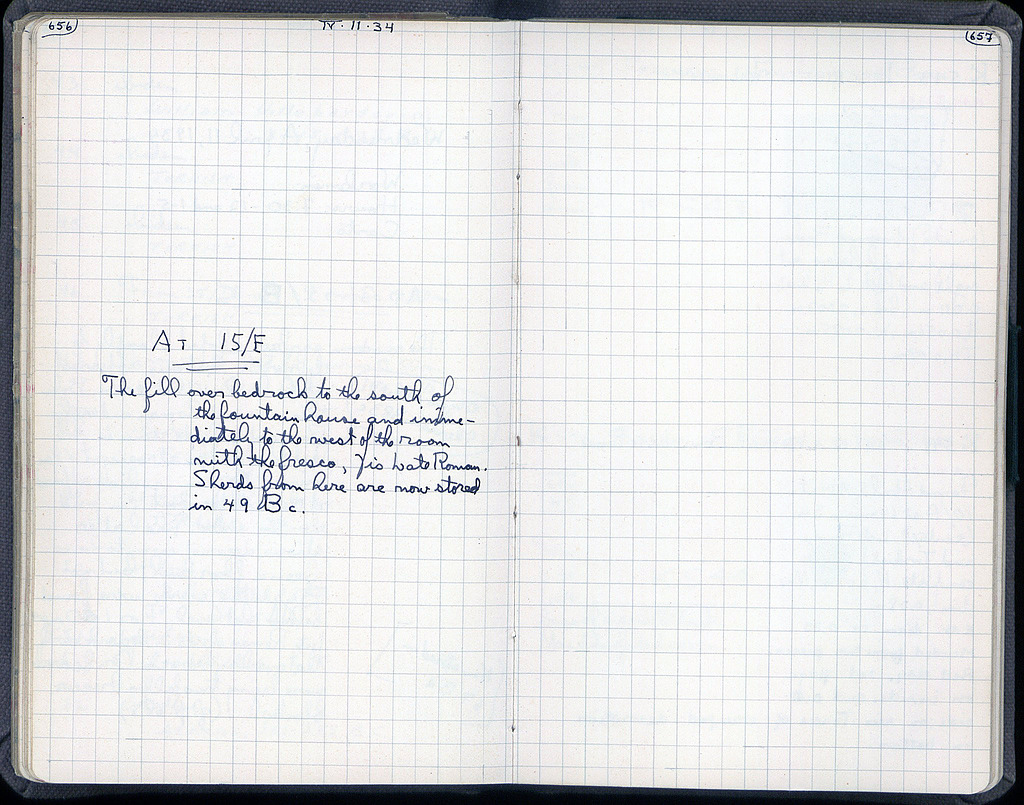 656
IV·11·34
657
At 15/E
The fill over bedrock to the south of
the fountain house and imme-
diately to the west of the room
with the fresco, is Late Roman.
Sherds from here are now stored
in 49 Bc.